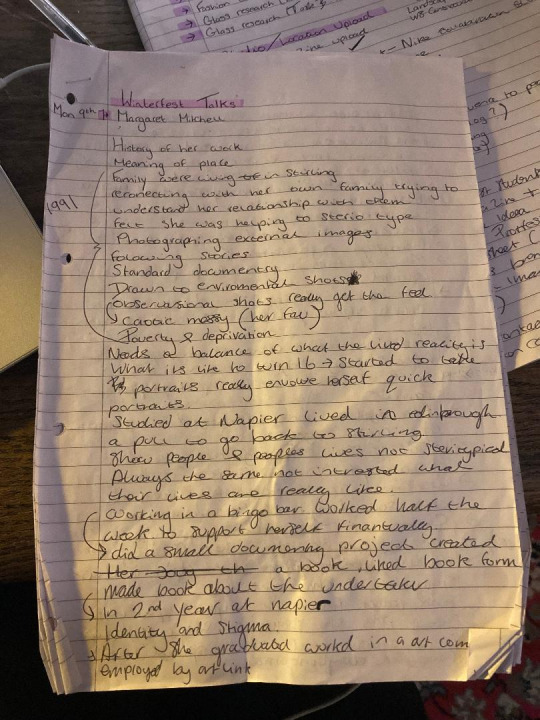 → Glass research
Glass research (Task
Location Upload
upload
Winterfest Talks
Mon 9th
Margaret Mitchell
History of her work
Meaning of place
Family were living in Stirling
reconecting with her own family trying to
1991
understand her relationship with them
felt she was helping to sterio type
Photographing external images
following stories
Standard documentry
Drawn to enviromental shots
observasional shots really get the feel
Caotic messy (her fav)
Poverty & deprivation
Needs a balance of what the lived reality is
What its like to turn 16 → Started to take
portraits really envolve herself quick
portraits.
Studied at Napier lived in edinbrough
a pull to go back to Stirling
Show people & peoples lives not steriotypical
Always the same not intrested what
their lives are really like.
Working in a bingo bar worked half the
week to support herself finantually.
→ did a small documentry project created
a book, liked book form
made book about the undertaker
In 2nd year at napier
Identity and Stigma.
→ After she graduated workd in a art com
employed by art link